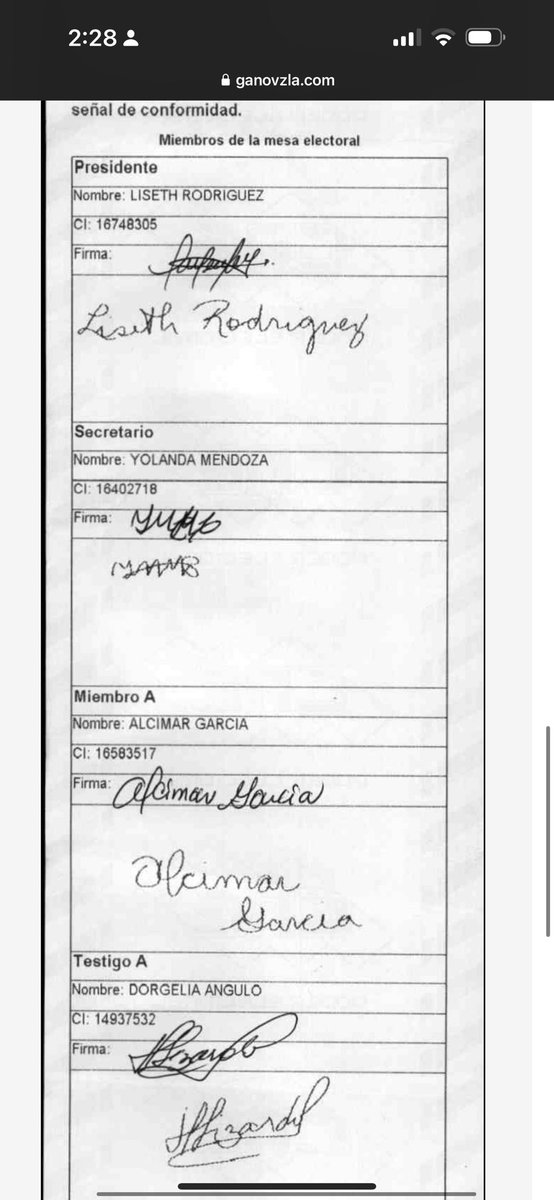 2:28
ganovzla.com
señal de conformidad.
Miembros de la mesa electoral
Presidente
Nombre: LISETH RODRIGUEZ
CI: 16748305
Firma:
Liseth Rodriguez
Secretario
Nombre: YOLANDA MENDOZA
CI: 16402718
Firma:
Miembro A
Nombre: ALCIMAR GARCIA
CI: 16583517
Firma: Alcimar Garcia
Alcimar
Garcia
Testigo A
Nombre: DORGELIA ANGULO
CI: 14937532
Firma: